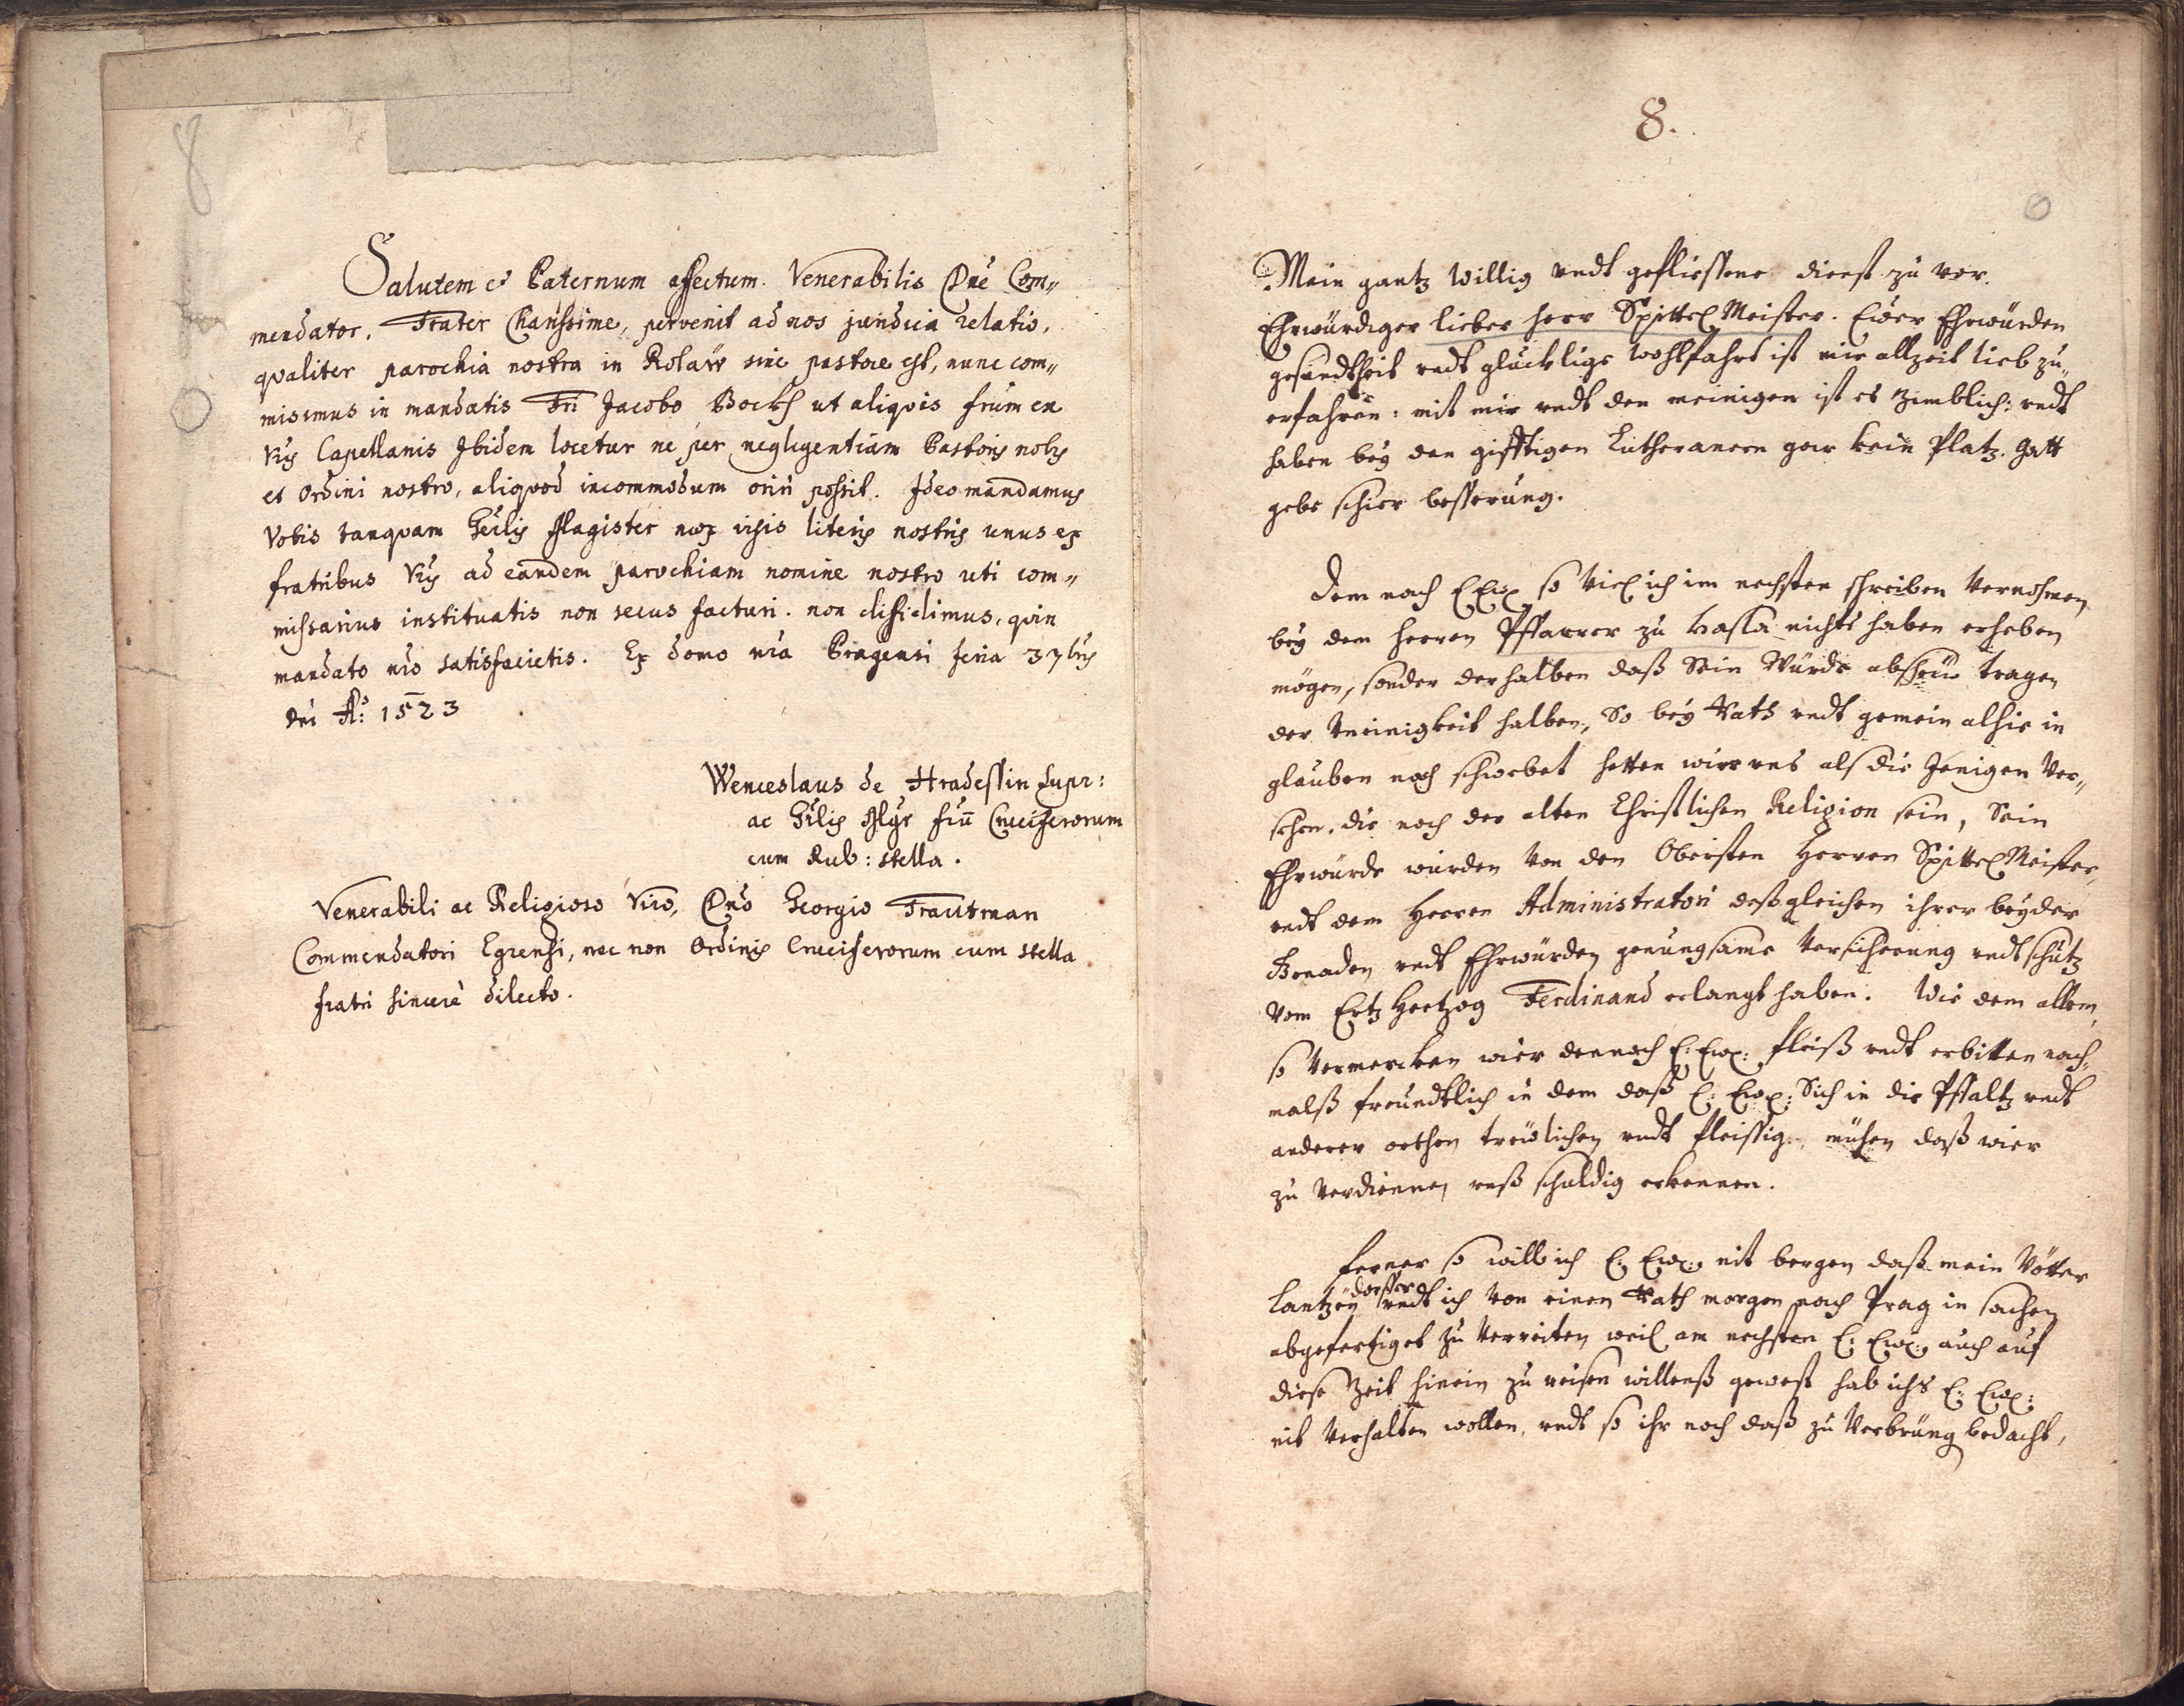 8
Salutem et Paternum affectum. Venerabilis Dne Com„
mendator, Frater Charissime, pervenit ad nos jundicia relatio,
qvaliter parochia nostra in Rolaw sine pastore est, nunc com„
misimus in mandatis Fri Jacobo Bockh ut aliqvis frum ex
vris Capellanis Ibidem locetur ne per negligentiam Pastoris nobis
et Ordini nostro, aliqvod incommodum oriri possit. Ideo mandamus
Vobis tanqvam Gerlis Magister mox visis literis nostris unus ex
fratribus vris ad eandem parochiam nomine nostro uti com„
missarius instituatis non secus facturi. non diffidimus, qvin
mandato nro satisfacietis. Ex domo nra Pragensi feria 3
dni Ao: 1523
Wenceslaus de Hradessin supr:
ac Grlis Mgr fru Cruciferorum
cum Rub: stella.
Venerabili ac Religioso Viro, Dno Georgio Trautman
Commendatori Egrensi, nec non Ordinis Cruciferorum cum stella
fratri sincere dilecto.
8.
Mein gantz willig undt gefliessene dienst zu vor.
Ehrwürdiger lieber herr Spittel Meister. Ewer Ehrwürden
gesundtheit undt glücklige wohlfahrt ist mir allzeit lieb zu„
erfahren: mit mir undt den meinigen ist es zimblich: undt
haben bey den gifftigen Lutheranern gar kein Platz. Gott
gebe schier besserung.
Dem nach E Ew so viel ich im nechsten schreiben vernohmen
bey dem herren Pffarrer zu Hasla nichts haben erheben
mögen, sonder derhalben daß Sein Würde abscheu tragen
der Uneinigkeit halben, So bey Rath undt gemein alhie in
glauben noch schwebet hetten wier uns als die Jenigen ver„
sehen. die noch der alten Christlichen Religion sein, Sein
Ehrwürde würden von den Obersten Herren Spittel Meister,
undt dem Herren Administratori deßgleichen ihrer beyder
Gnaden undt Ehrwürden genungsame versicherung undt schutz
vom Ertz Hertzog Ferdinand erlangt haben. Wie dem allem,
so vermercken wier dennoch E: Ew: fleiß undt erbitten noch„
malß freundtlich in dem daß E: Ew: Sich in die Pffaltz undt
anderer orthen treülichen undt fleissig mühen daß wier
zu verdienen unß schuldig erkennen.
Ferner so will ich E. Ew. nit bergen daß mein Vötter
dorffer
Lantzen undt ich von einen Rath morgen nach Prag in sachen
abgefertiget zu verreiten weil am nechsten E: Ew: auch auf
diese Zeit hinein zu reisen willenß gewest hab ichs E: Ew:
nit verhalten wollen, undt so ihr noch daß zu bedacht,